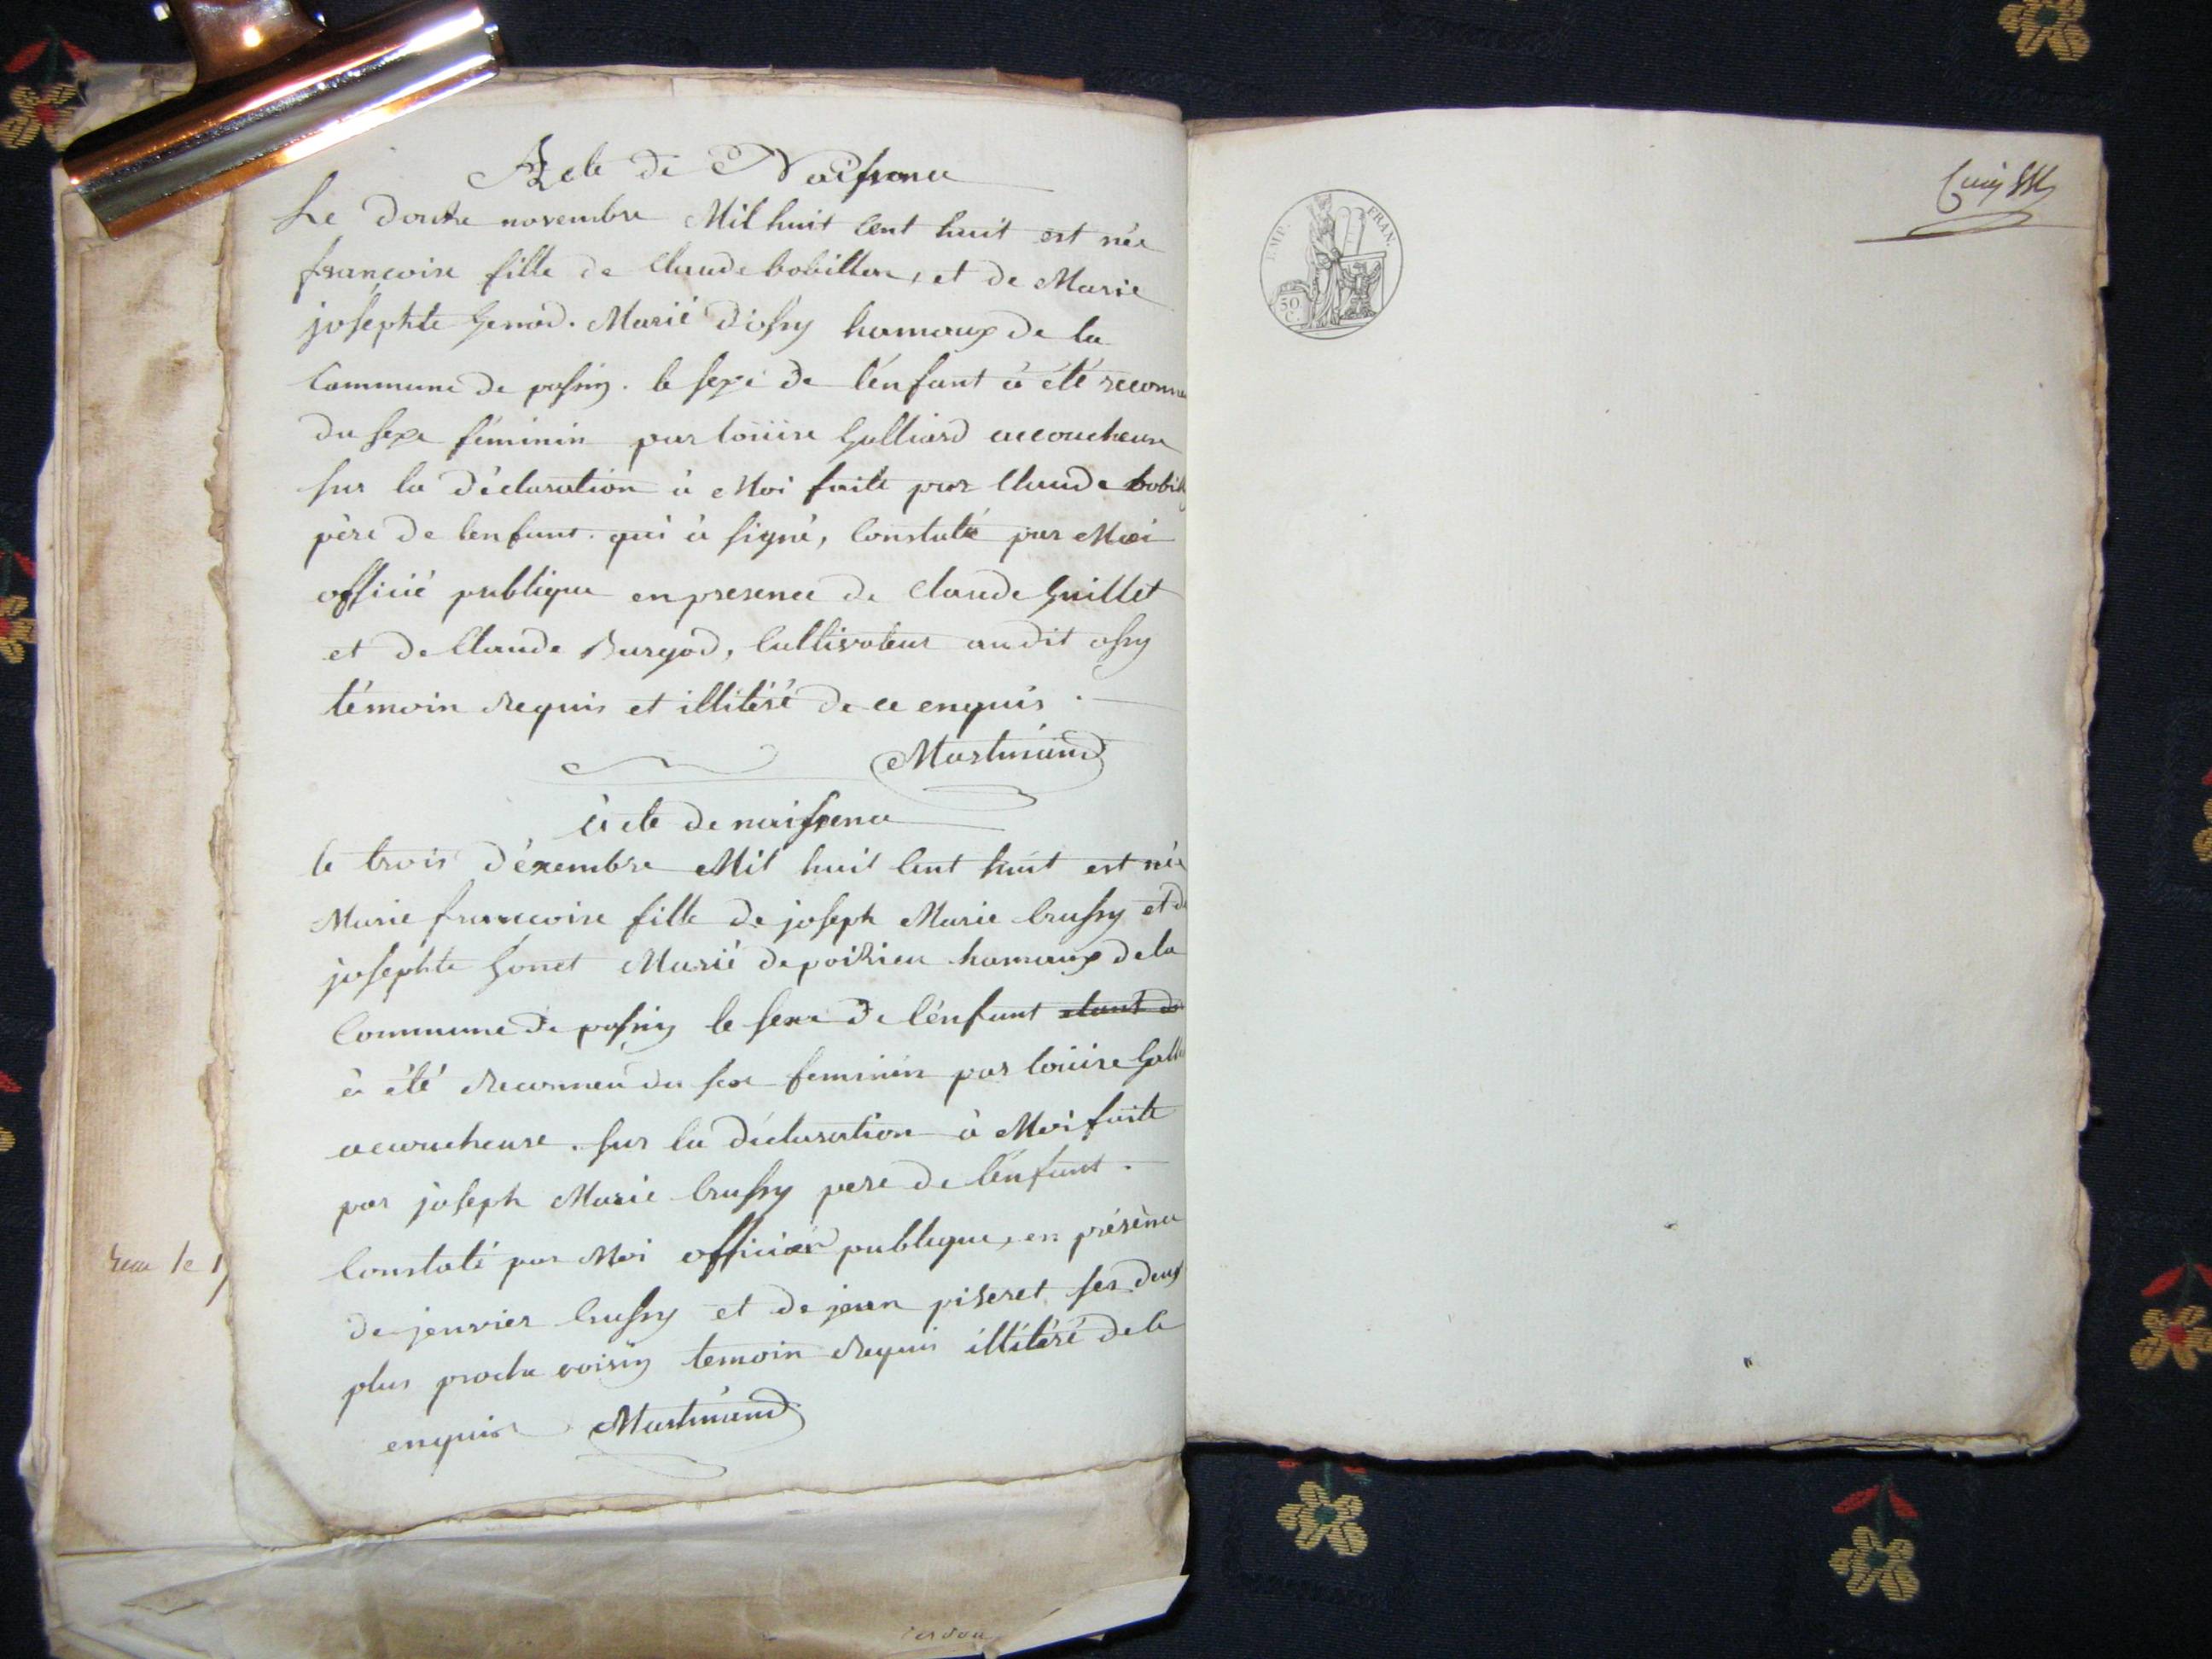 Acte de Naissance
Le douze novembre Mil huit Cent huit est née
francoise fille de Claude bobillon, et de Marie
josephte Genod. Marié d'ossy hamaux de la
Commune de possin. le sexe de l'énfant à été reconnu
du sexe féminin par loüise Galliard accoucheuse
sur la déclaration à Moi faite par Claude bobil
père de lenfant. qui à signé, Constaté par Moi
officié publique en presence de Claude Guillet
et de Claude Burgod, Cultivateur audit ossy
témoin requis et illitéré de ce enquis.
Martinand
Acte de naissance
le trois décembre Mil huit Cent huit est née
Marie francoise fille de joseph Marie Crussy et de
josephte Gonet Marié de poirieu hamaux de la
Commune de possin le sexe de l'énfant etant du
à été reconneu du sexe feminin par loüise Gall
acoucheuse. sur la déclaration à Moi faite
par joseph Marie Crussy pere de l'énfant.
Constaté par Moi officier publique, en présence
de jenvier Crussy et de jean piseret ses deux
plus proche voisin temoin requis illitéré de ce
enquis Martinand
EMP. FRAN.
50
C.